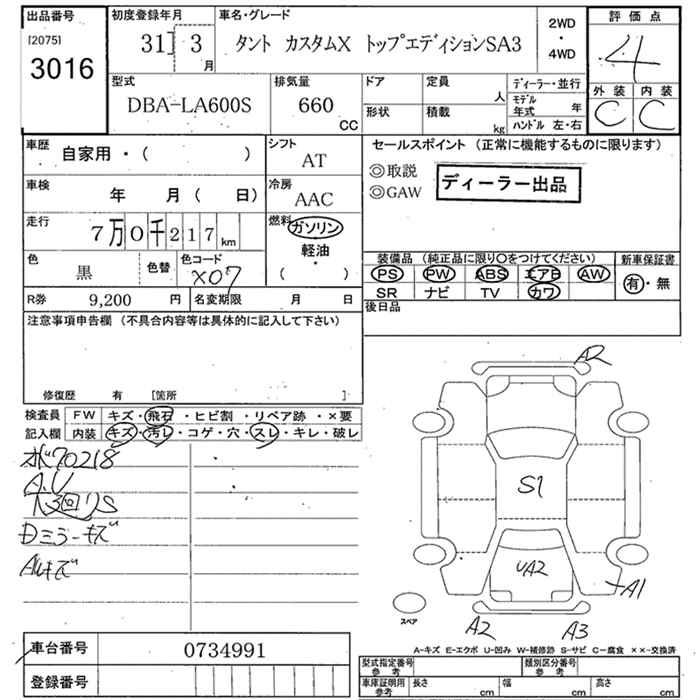 出品番号
[2075]
3016
初度登録年月
31 3
月
車名・グレード
タント カスタムX トップエディションSA3
2WD
・
4WD
評価点
4
外装 内装
C C
型式
DBA-LA600S
排気量
660
CC
ドア
形状
定員
人
積載
kg
ディーラー・並行
モデル年式 年
ハンドル 左・右
車歴
自家用・( )
シフト
AT
車検
年 月( 日)
冷房
AAC
走行
7万0千217km
燃料
ガソリン
軽油
( ・ )
色
黒
色替
色コード
X07
R券 9,200 円
名変期限 月 日
セールスポイント (正常に機能するものに限ります)
◎取説
◎GAW
ディーラー出品
装備品 (純正品に限り○をつけてください)
PS PW ABS エアB AW
SR ナビ TV カワ
新車保証書
有・無
後日品
注意事項申告欄 (不具合内容等は具体的に記入して下さい)
修復歴 有 [箇所 ]
検査員
記入欄
FW キズ・飛石・ヒビ割・リペア跡・×要
内装 キズ・汚レ・コゲ・穴・スレ・キレ・破レ
水70218
A.U
Dミラーキズ
AWキズ
A2
S1
UA2
A1
A2
A3
スペア
A-キズ E-エクボ U-凹み W-補修跡 S-サビ C-腐食 ××-交換済
車台番号
0734991
登録番号
型式指定番号
参考
類別区分番号
参考
車庫証明用
参考
長さ cm
幅 cm
高さ cm